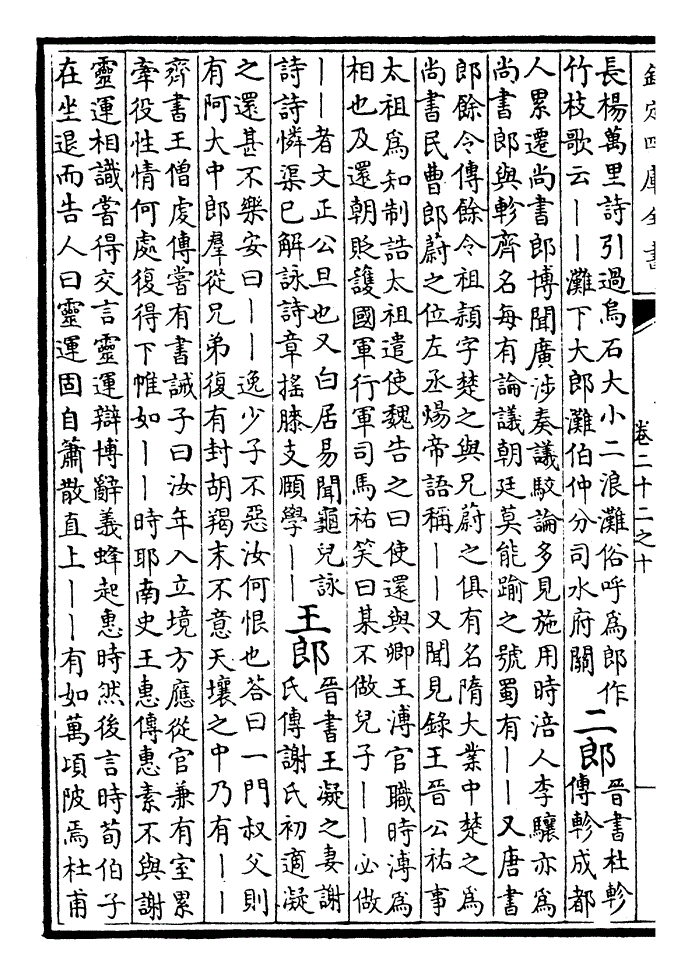 欽定四庫全書
卷二十二之十
長楊萬里詩引過烏石大小二浪灘俗呼為郎作
竹枝歌云——灘下大郎灘伯仲分司水府關
二郎
晉書杜軫
傳軫成都
人累遷尚書郎博聞廣涉奏議駮論多見施用時涪人李驤亦為
尚書郎與軫齊名每有論議朝廷莫能踰之號蜀有——又唐書
郎餘令傳餘令祖潁字楚之與兄蔚之俱有名隋大業中楚之為
尚書民曹郎蔚之位左丞煬帝語稱——又聞見錄王晉公祐事
太祖為知制誥太祖遣使魏告之曰使還與卿王溥官職時溥為
相也及還朝貶護國軍行軍司馬祐笑曰某不做兒子——必做
——者文正公旦也又白居易聞龜兒詠
詩詩憐渠已解詠詩章搖膝支頤學——
王郎
晉書王凝之妻謝
氏傳謝氏初適凝
之還甚不樂安曰——逸少子不惡汝何恨也答曰一門叔父則
有阿大中郎羣從兄弟復有封胡羯末不意天壤之中乃有——
齊書王僧虔傳嘗有書誡子曰汝年入立境方應從官兼有室累
牽役性情何處復得下帷如——時耶南史王惠傳惠素不與謝
靈運相識嘗得交言靈運辯博辭義蜂起惠時然後言時荀伯子
在坐退而告人曰靈運固自蕭散直上——有如萬頃陂焉杜甫